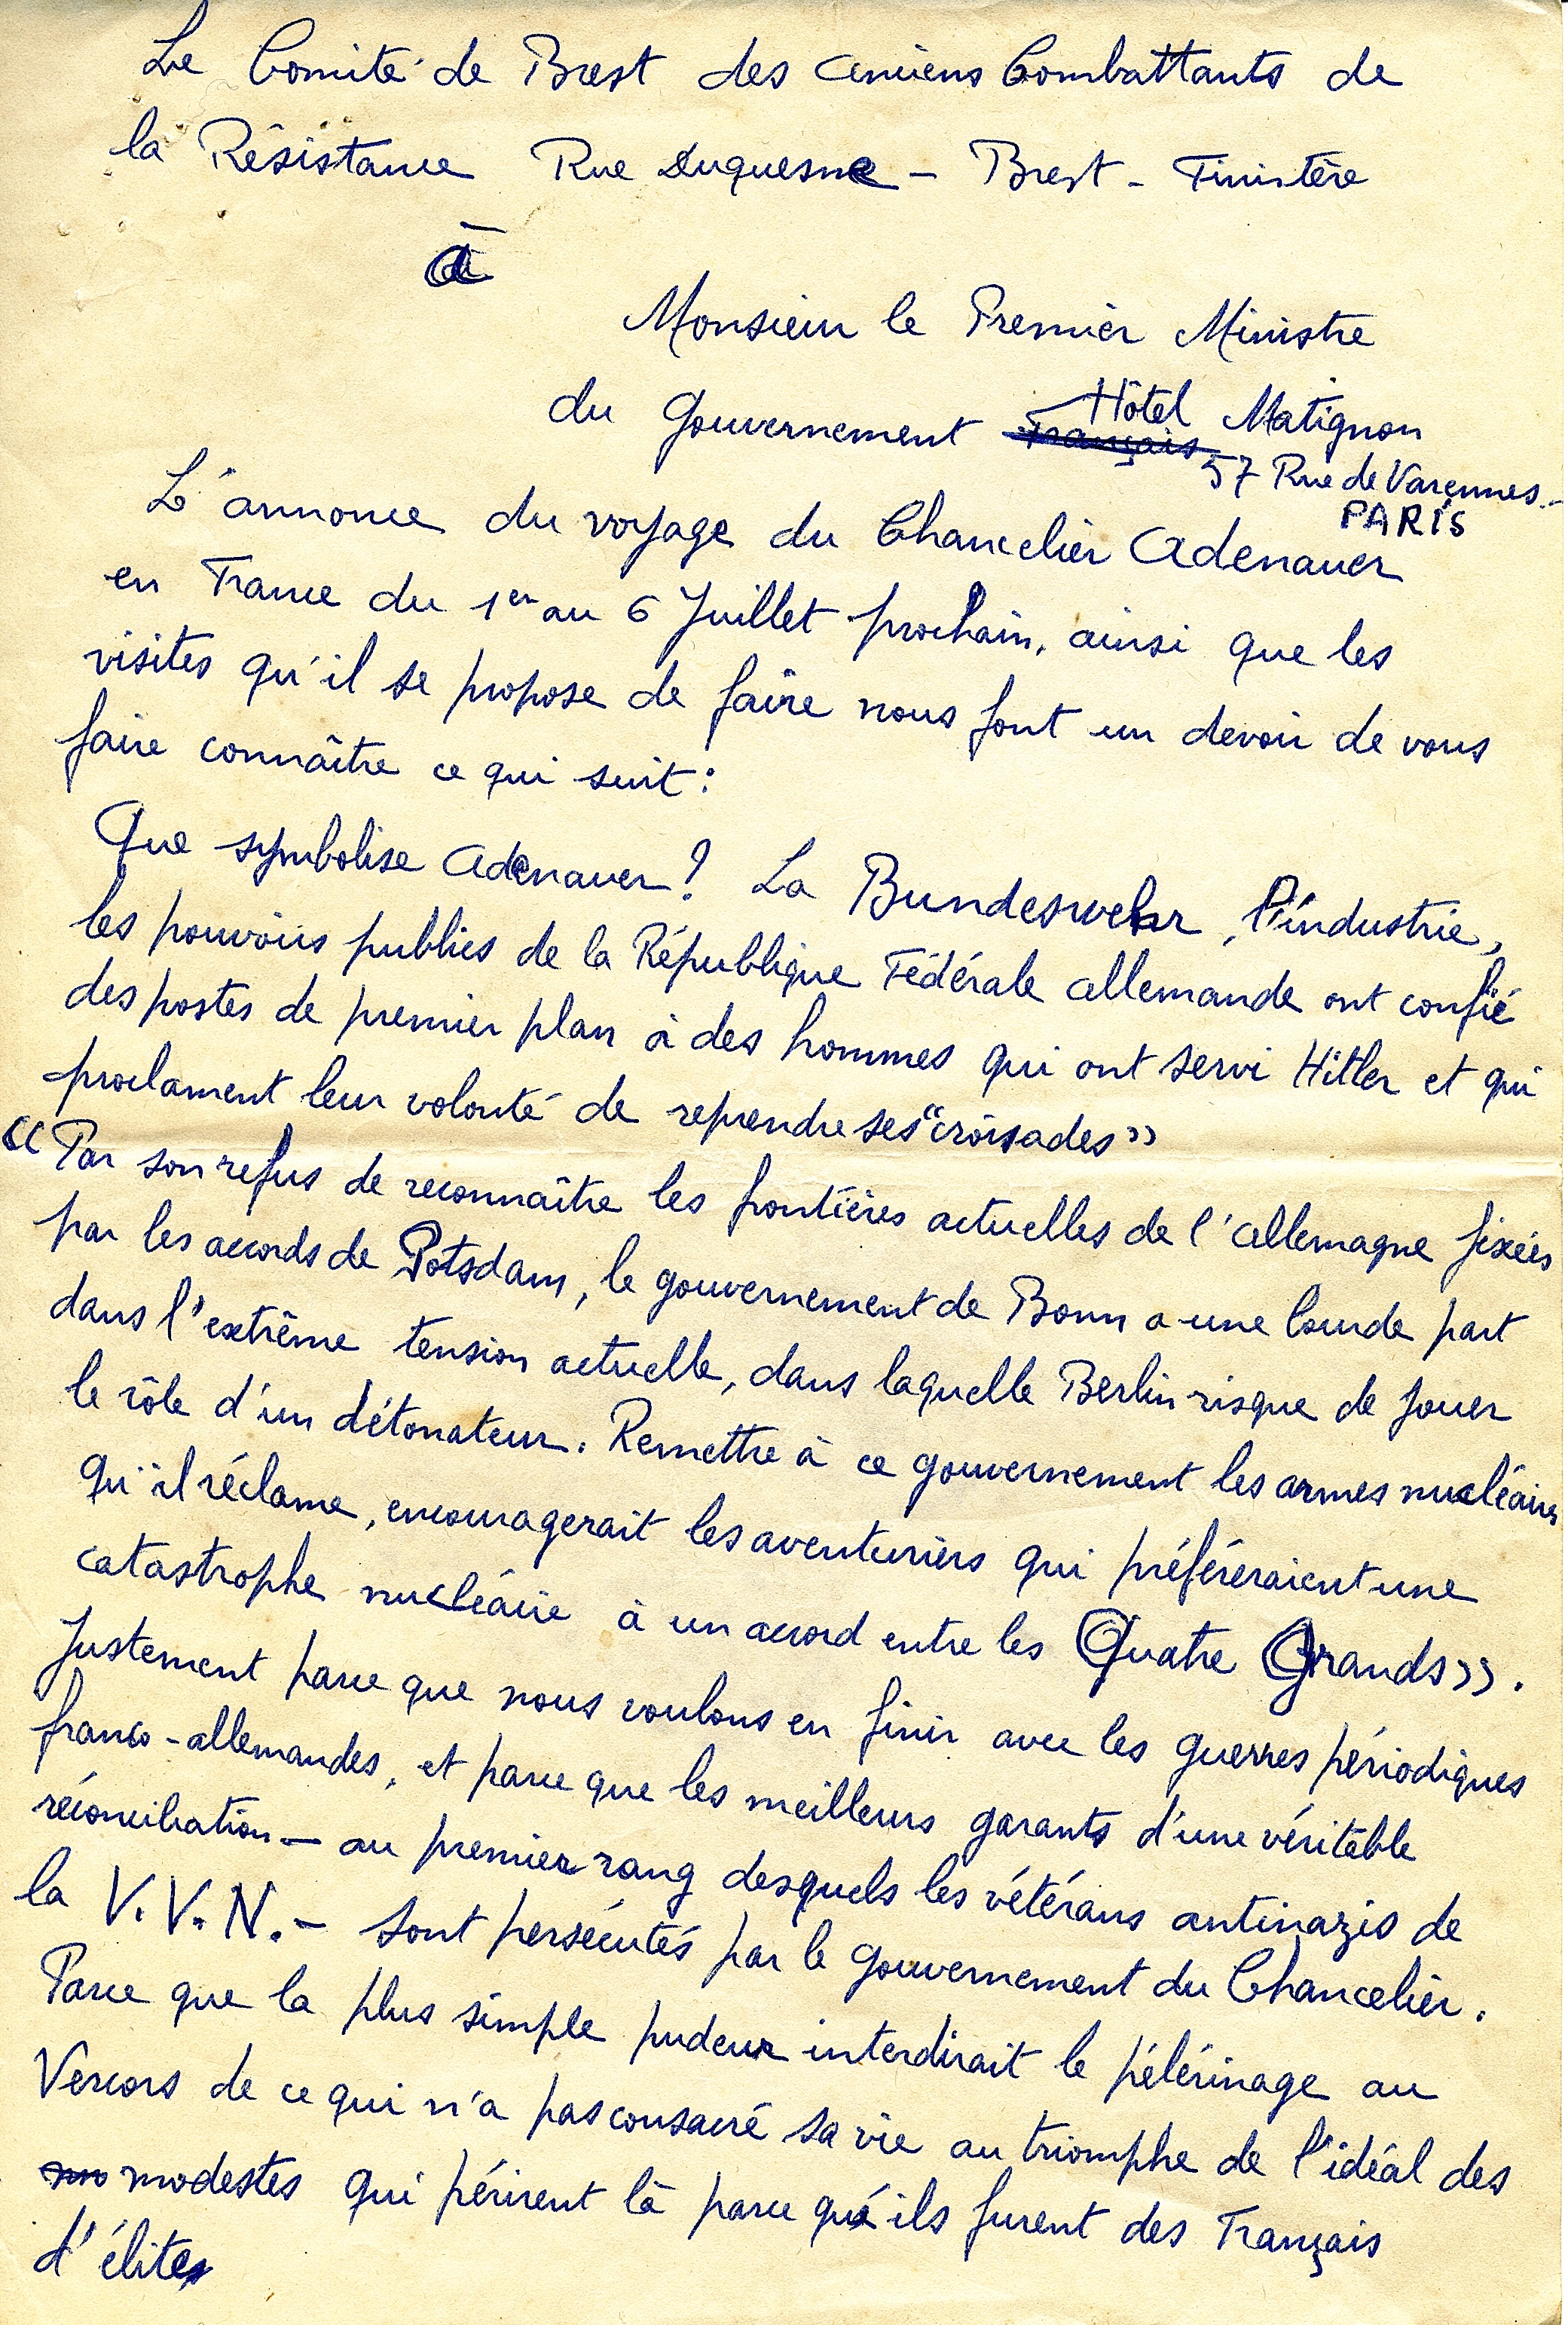 Le Comité de Brest des Anciens Combattants de
la Résistance Rue Duquesne – Brest – Finistère
à
Monsieur le Premier Ministre
du Gouvernement Français Hôtel Matignon
57 Rue de Varennes –
PARIS
L'annonce du voyage du Chancelier Adenauer
en France du 1er au 6 Juillet prochain, ainsi que les
visites qu'il se propose de faire nous font un devoir de vous
faire connaître ce qui suit :
Que symbolise Adenauer ? La Bundeswehr, l'industrie,
les pouvoirs publics de la République Fédérale Allemande ont confié
des postes de premier plan à des hommes qui ont servi Hitler et qui
proclament leur volonté de reprendre ses "croisades"
"Par son refus de reconnaître les frontières actuelles de l'Allemagne fixées
par les accords de Potsdam, le gouvernement de Bonn a une lourde part
dans l'extrême tension actuelle, dans laquelle Berlin risque de jouer
le rôle d'un détonateur. Remettre à ce gouvernement les armes nucléaires
qu'il réclame, encouragerait les aventuriers qui préféreraient une
catastrophe nucléaire à un accord entre les Quatre Grands".
Justement parce que nous voulons en finir avec les guerres périodiques
franco-allemandes, et parce que les meilleurs garants d'une véritable
réconciliation – au premier rang desquels les vétérans antinazis de
la V.V.N. – sont persécutés par le gouvernement du Chancelier.
Parce que la plus simple pudeur interdirait le pélérinage au
Vercors de ce qui n'a pas consacré sa vie au triomphe de l'idéal des
modestes qui périrent là parce qu'ils furent des Français
d'élites